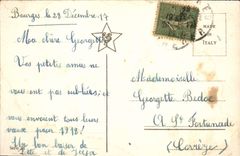 Bourges le 29 Décembre 17
Ma chère Georgette
Vos petites amies ne
vous ont pas oubliées et
vous envoient tous leurs
vœux pour 1918!
bon baiser de
et de
MADE
ITALY
Mademoiselle
Georgette Bedoc
A Ste Fortunade
(Corrèze)